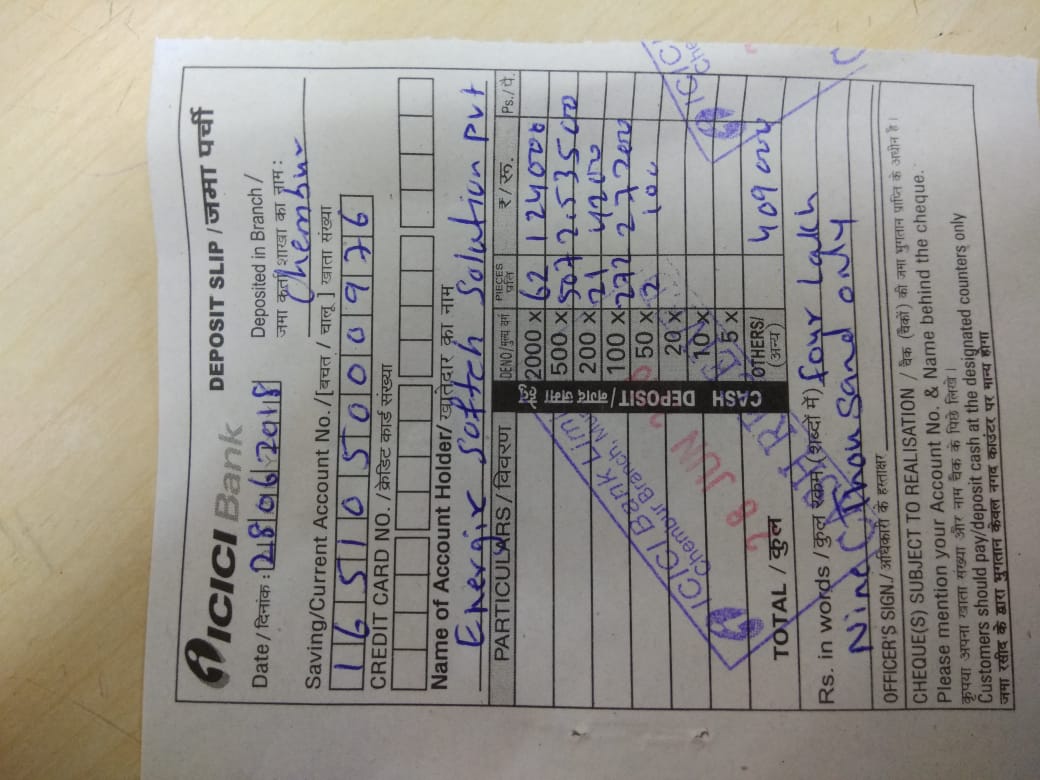 ICICI Bank DEPOSIT SLIP / जमा पर्ची
Date / दिनांक : 28062018 Deposited in Branch /
जमा कर्ता शाखा का नाम:
Chembur
Saving/Current Account No./[बचत / चालू] खाता संख्या
165105000976
CREDIT CARD NO. /क्रेडिट कार्ड संख्या
Name of Account Holder/ खातेदार का नाम
Energie softech solution pvt
PARTICULARS / विवरण DENO/मुल्य वर्ग PIECES प्रति ₹ / रू. Ps./ पै.
CASH DEPOSIT / नगद जमा
2000 x 62 124000
500 x 507 253500
200 x 21 4200
100 x 272 27200
50 x 2 100
20 x
10 x
5 x
OTHERS/
(अन्य)
TOTAL / कुल 409000
Rs. in words / कुल रकम (शब्दों में) four Lakh
Nine Thousand only
OFFICER'S SIGN./ अधिकारी के हस्ताक्षर
CHEQUE(S) SUBJECT TO REALISATION / चैक (चैकों) की जमा भुगतान प्राप्ति के अधीन है।
Please mention your Account No. & Name behind the cheque.
कृपया अपना खाता संख्या और नाम चैक के पिछे लिखे।
Customers should pay/deposit cash at the designated counters only
जमा रसीद के द्वारा भुगतान केवल नगद काउंटर पर मान्य होगा
ICICI Bank Limi
Chembur Branch, Mu
28 JUN
ICIC
Che